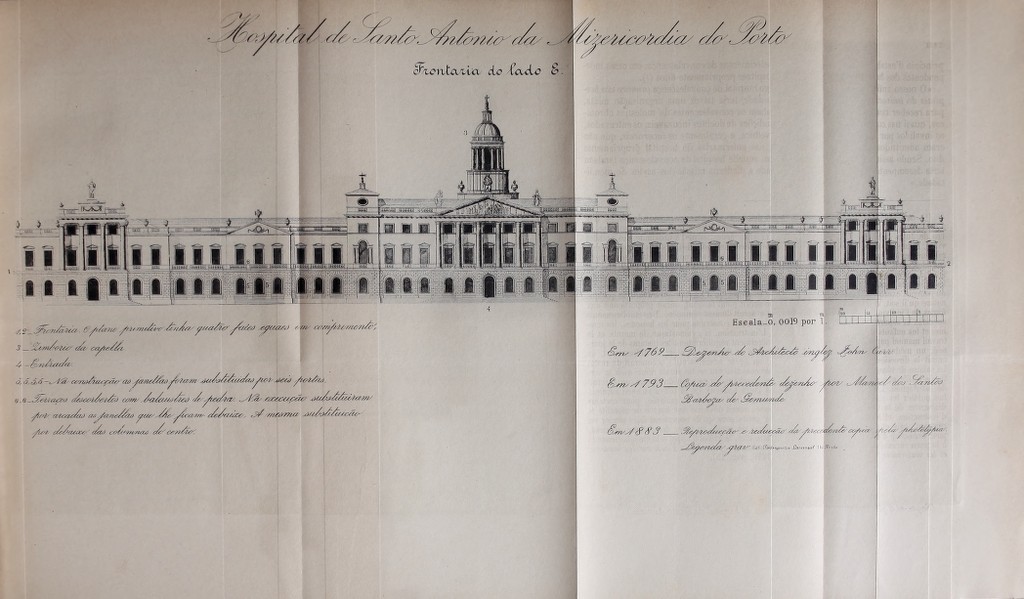 Hospital de Santo Antonio da Mizericordia do Porto
Frontaria do lado E.
3
1
2
4
Escala_0,0019 por 1
1,2_Frontaria. O plano primitivo tinha quatro faces eguaes em comprimento.
3_Zimborio da capella
4_Entrada
5.5.5.5_Na construcção as janellas foram substituidas por seis portas.
Terraços descorbertos com balaustres de pedra. Na execução substituiram
por arcadas as janellas que lhe ficam debaixo. A mesma substituição
por debaixo das columnas do centro.
Em 1769_Dezenho do Architecto inglez John Carr
Em 1793_Copia do precedente dezenho por Manoel dos Santos
Barboza de Gemunde
Em 1883_Reproducção e reducção da precedente copia pela phototypia
Legenda grav